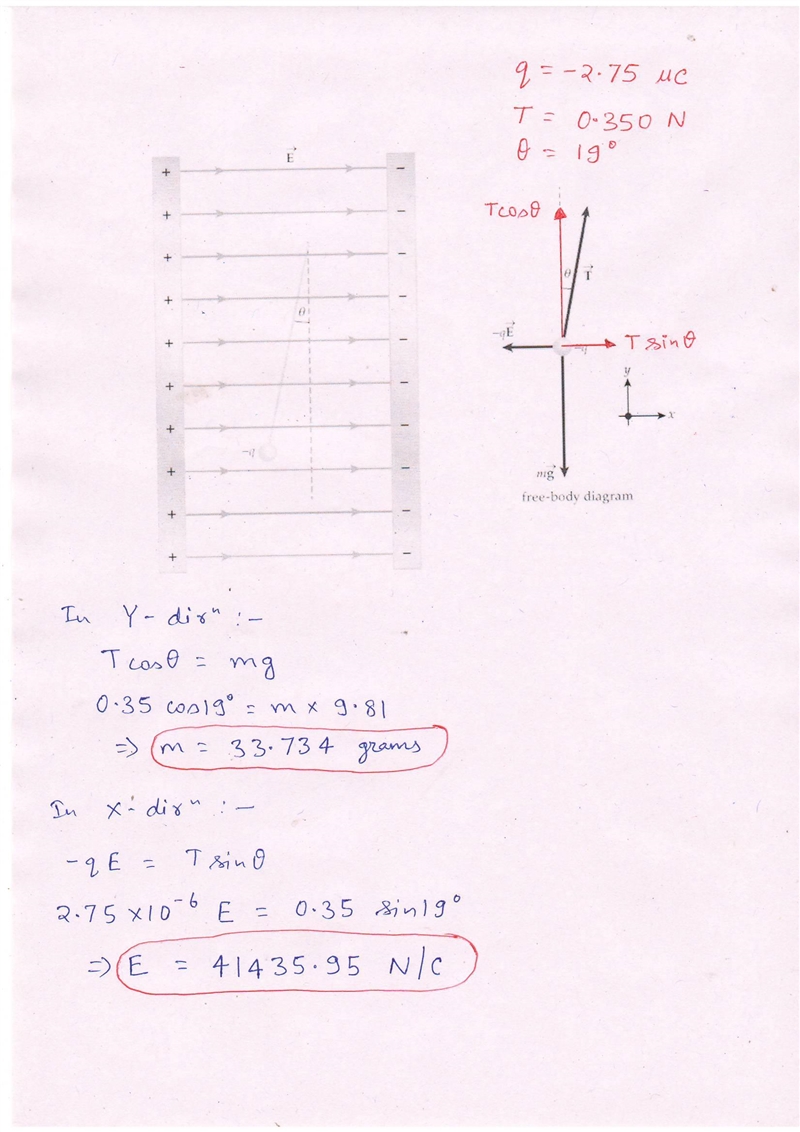 q = -2.75 µC
T = 0.350 N
θ = 19°
E
+ -
+ -
+ -
+ -
θ
+ -
+ -
+ -
-q
+ -
+ -
+ -
Tcosθ
θ T
-qE
-q
T sinθ
y
x
mg
free-body diagram
In Y-dirⁿ :-
Tcosθ = mg
0.35 cos19° = m × 9.81
⇒ m = 33.734 grams
In X-dirⁿ :-
-qE = T sinθ
2.75 ×10⁻⁶ E = 0.35 sin19°
⇒ E = 41435.95 N/C